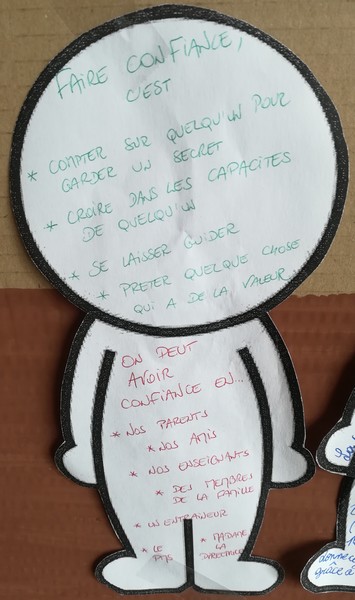 FAIRE CONFIANCE,
C'EST
* COMPTER SUR QUELQU'UN POUR
GARDER UN SECRET
* CROIRE DANS LES CAPACITES
DE QUELQU'UN
* SE LAISSER GUIDER
* PRETER QUELQUE CHOSE
QUI A DE LA VALEUR
ON PEUT
AVOIR
CONFIANCE EN...
* NOS PARENTS
* NOS AMIS
* NOS ENSEIGNANTS
* DES MEMBRES
DE LA FAMILLE
* UN ENTRAINEUR
* LE
PSY
* MADAME
LA
DIRECTRICE
grâce à